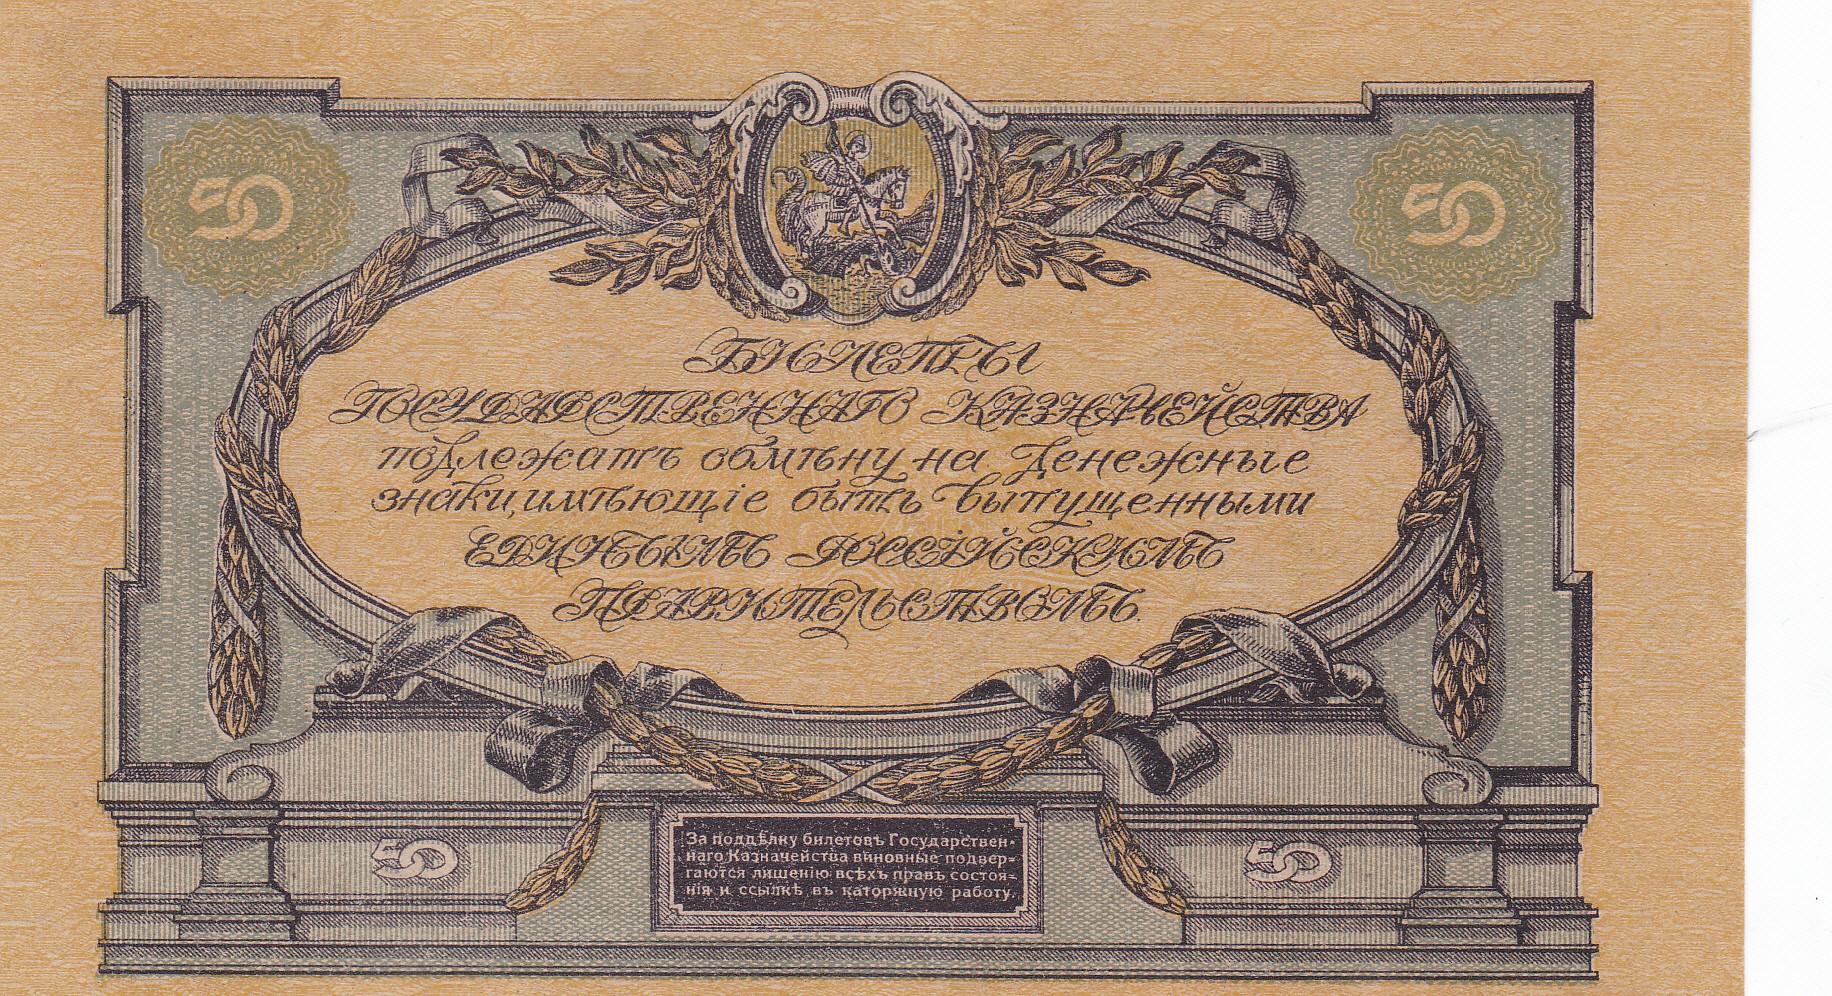 50 50
БИЛЕТЫ
ГОСУДАРСТВЕННАГО КАЗНАЧЕЙСТВА
подлежатъ обмѣну на денежные
знаки, имѣющіе быть выпущенными
ЕДИНЫМЪ РОССІЙСКИМЪ
ПРАВИТЕЛЬСТВОМЪ.
50 50
За поддѣлку билетовъ Государствен-
наго Казначейства виновные подвер-
гаются лишенію всѣхъ правъ состоя-
нія и ссылкѣ въ каторжную работу.